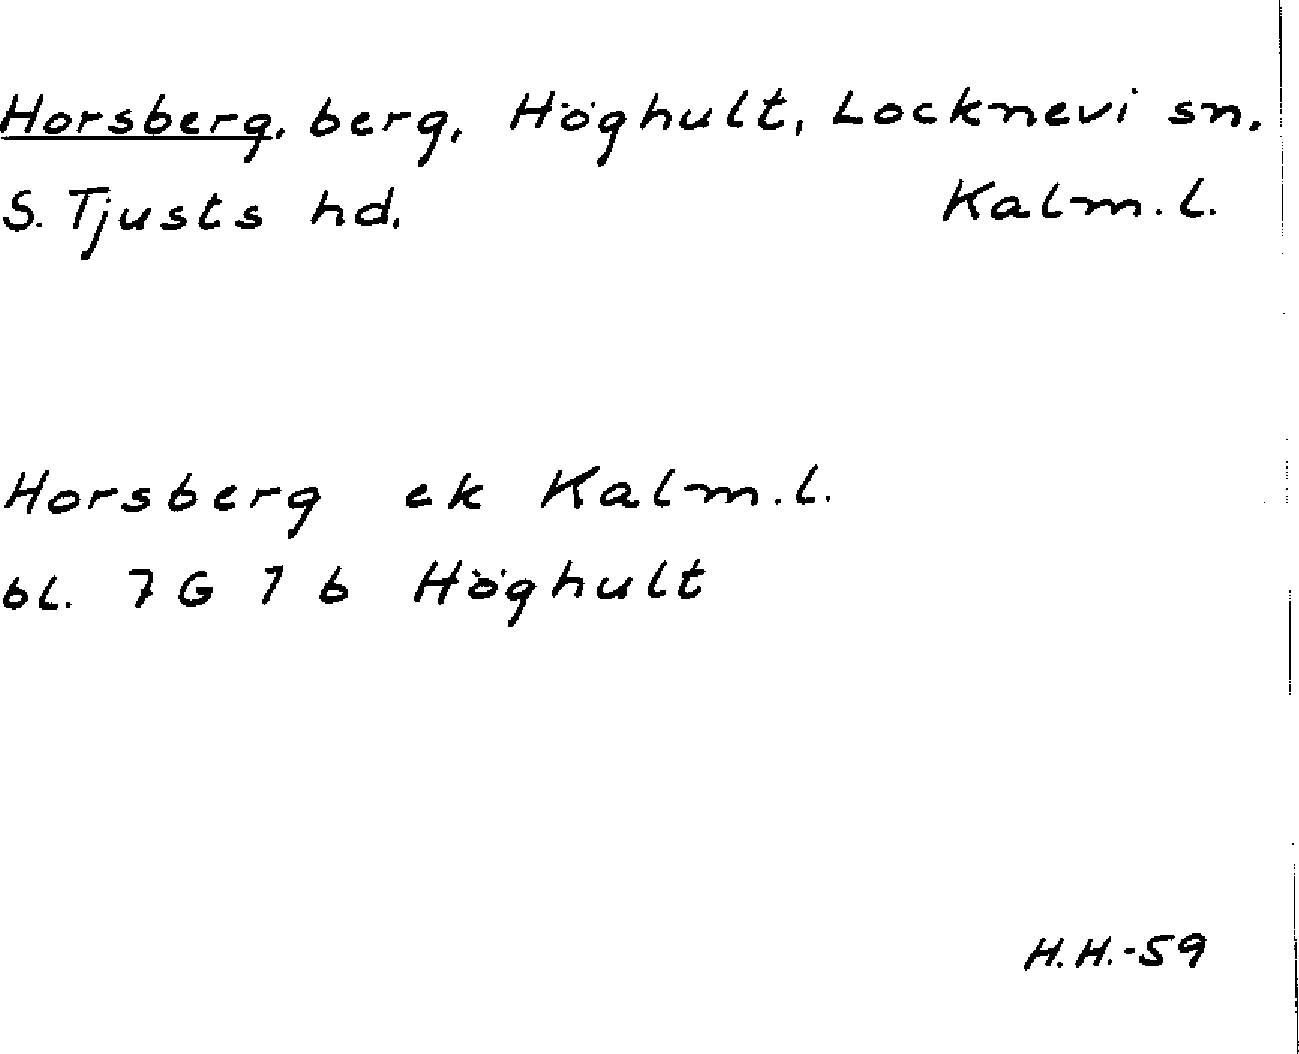 Horsberg, berg, Höghult, Locknevi sn,
S. Tjusts hd. Kalm. l.
Horsberg ek Kalm. l.
bl. 7 G 7 b Höghult
H.H.-59